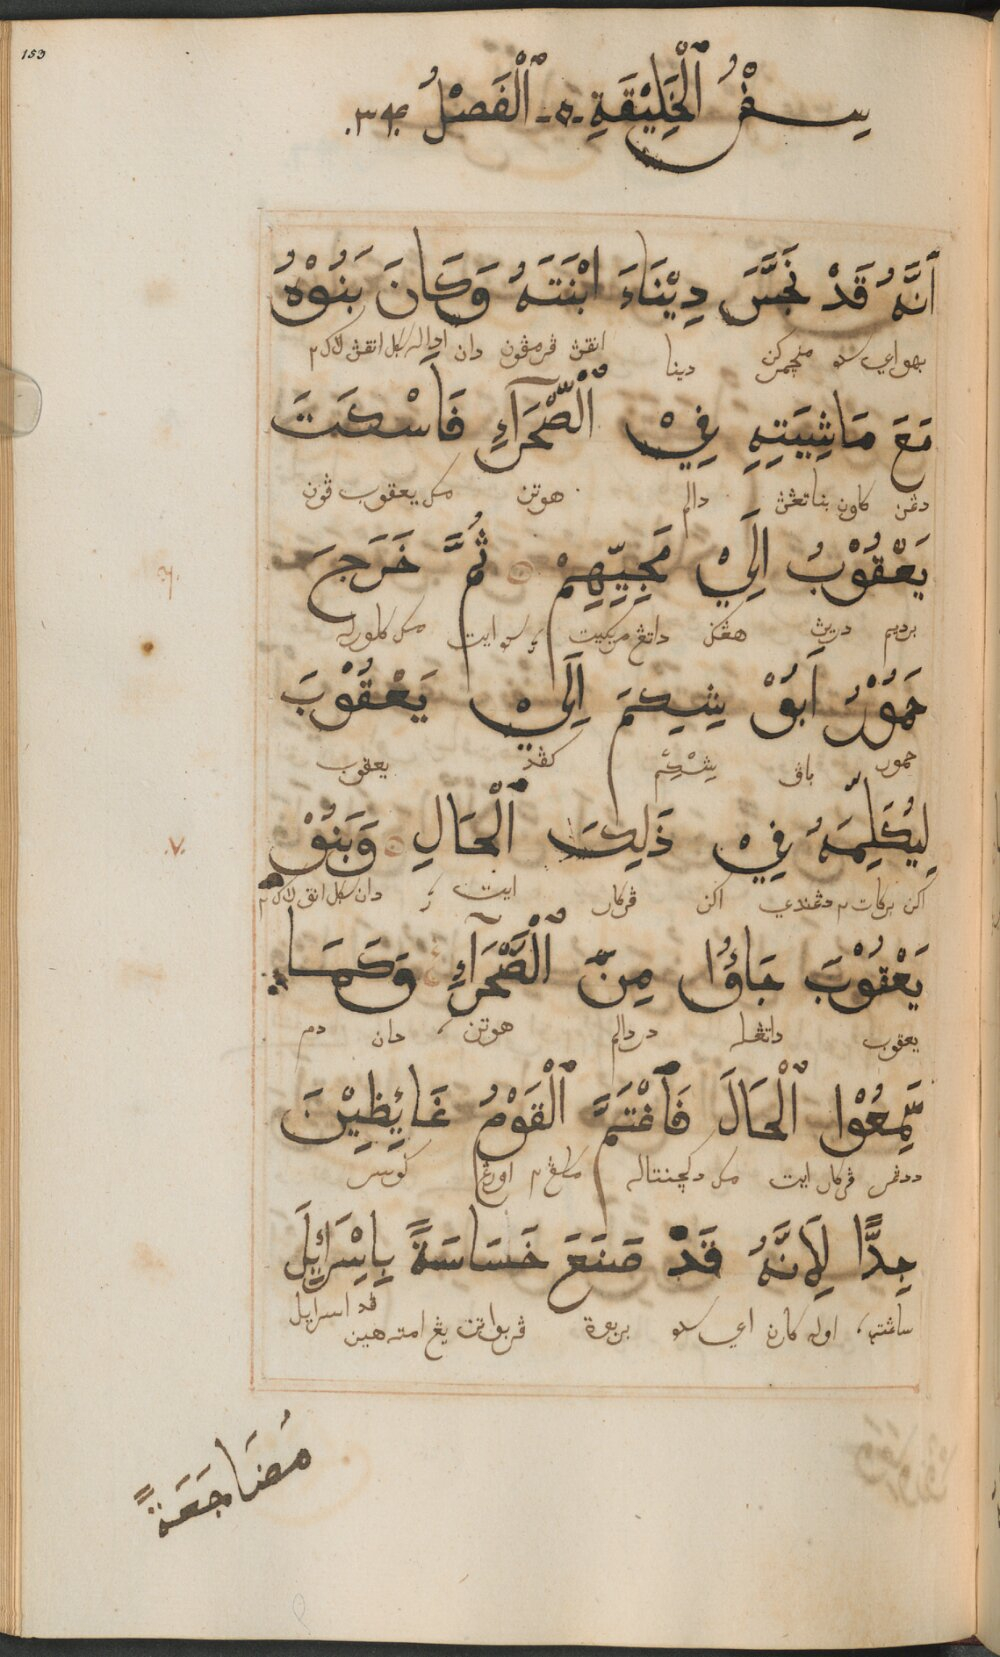 153
سِفْرُ ٱلْخَلِيْقَةِ ٱلْفَصْلُ ٣٤
اَنَّهُ قَدْ نَجَّسَ دِيْنَاءَ ابْنَتَهُ وَكَانَ بَنُوْهُ
بهواي سده منچمركن دينا انقڽ ڤرمڤون دان اداله سكل انقڽ لاك٢
مَعَ مَاشِيَتِهِ فِيْ ٱلْصَّحَرَآءِ فَاسْكَتَ
دڠن كاون بناتڠڽ دالم هوتن مك يعقوب ڤون
يَعْقُوْبُ اِلَيْ مَجِيِّهِمْ ثُمَّ خَرَجَ
برديم ديريڽ هڠڬ داتڠ مريكيت ايت مك كلورله
حَمُوْرُ اَبُوْ شِكِمَ اِلَيْ يَعْقُوْبَ
حمور باڤ شِكِمْ كڤد يعقوب
لِيُكَلِّمَهُ فِيْ ذَلِكَ ٱلْحَالِ وَبَنُوْ
اكن بركات٢ دڠندي اكن ڤركار ايت دان سكل انق لاك٢
يَعْقُوْبَ جَاؤُا مِنَ ٱلْصَّحَرَآءِ وَكَمَا
يعقوب داتڠله دردالم هوتن دان دم
سَّمِعُوْا ٱلْحَالَ فَٱغْتَمَّ ٱلْقَوْمُ غَائِظِيْنَ
ددڠر ڤركار ايت مك دكچنتاله اورڠ ڬوسر
جِدًّا لِاَنَّهُ قَدْ صَنَعَ خَسَاسَةً بِاِسْرَائِلَ
ساڠت اوله كارن اي سده بربوة ڤربواتن يڠ امت هين ڤد اسرايل
٦
٧
مُضَاجَعَةً